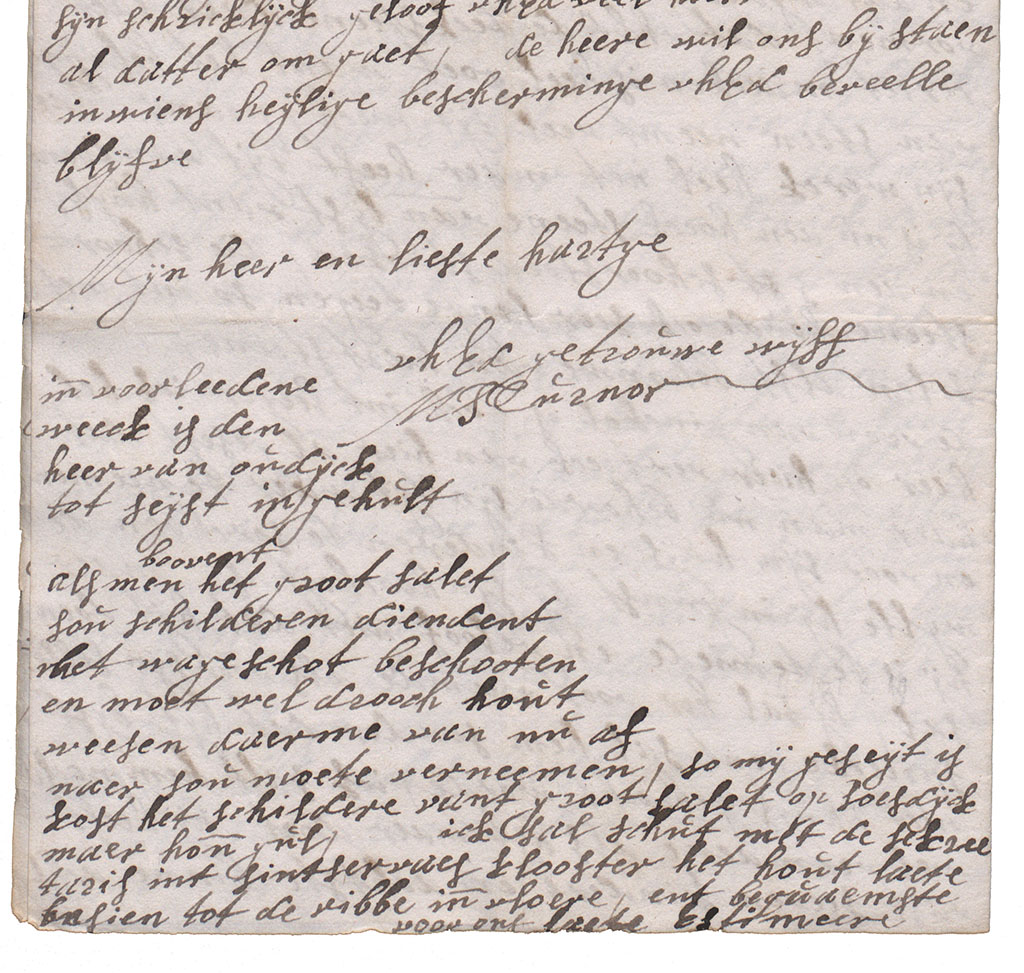 syn schricklyck geloof uhEd veel
al datter om gaet, de heere wil ons by staen
in wiens heylige bescherminge uhEd beveelle
blyfve
Myn heer en liefste hartge
uhEd getrouwe wyff
M Turnor
in voorleedene
weeck is den
heer van oudyck
tot seyst in gehult
boovent
alsmen het groot salet
sou schilderen diendent
met wageschot beschooten
en moet wel drooch hout
weesen daerme van nu af
naer sou moete verneemen, so my geseyt is
kost het schildere vant groot salet op soesdyck
maer hon gul, ick sal schut met de sekree
taris int sintservaes klooster het hout laete
besien tot de ribbe in vloere, ent beruaemste
voor ons laete estimeere